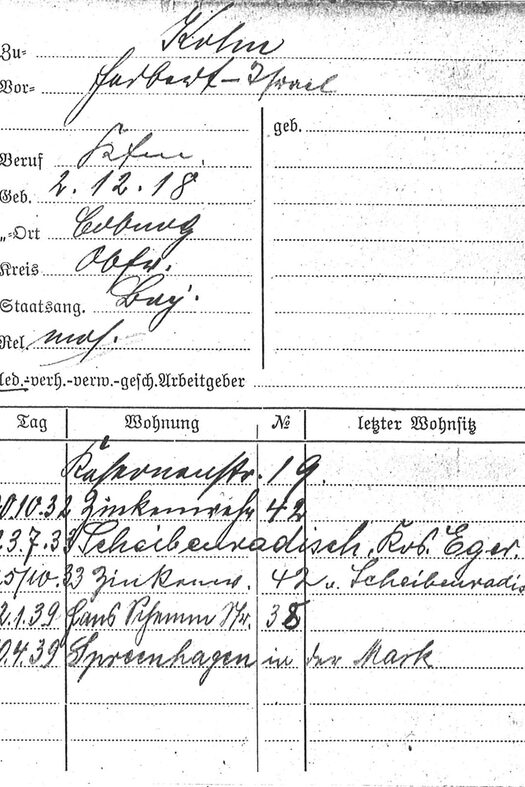 Zu- Kohn
Vor- Herbert-Israel
geb.
Beruf Kfm.
Geb. 2.12.18
"-Ort Coburg
Kreis Obfr.
Staatsang. Bay.
Rel. mos.
led.-verh.-verw.-gesch. Arbeitgeber
Tag Wohnung № letzter Wohnsitz
Kasernenstr. 19.
0.10.32 Zinkenwehr 42
23.7.33 Scheibenradisch, Krs. Eger.
5/10.33 Zinkenw. 42 u. Scheibenradis
2.1.39 Hans Schemm Str. 38
0.4.39 Spreenhagen in der Mark